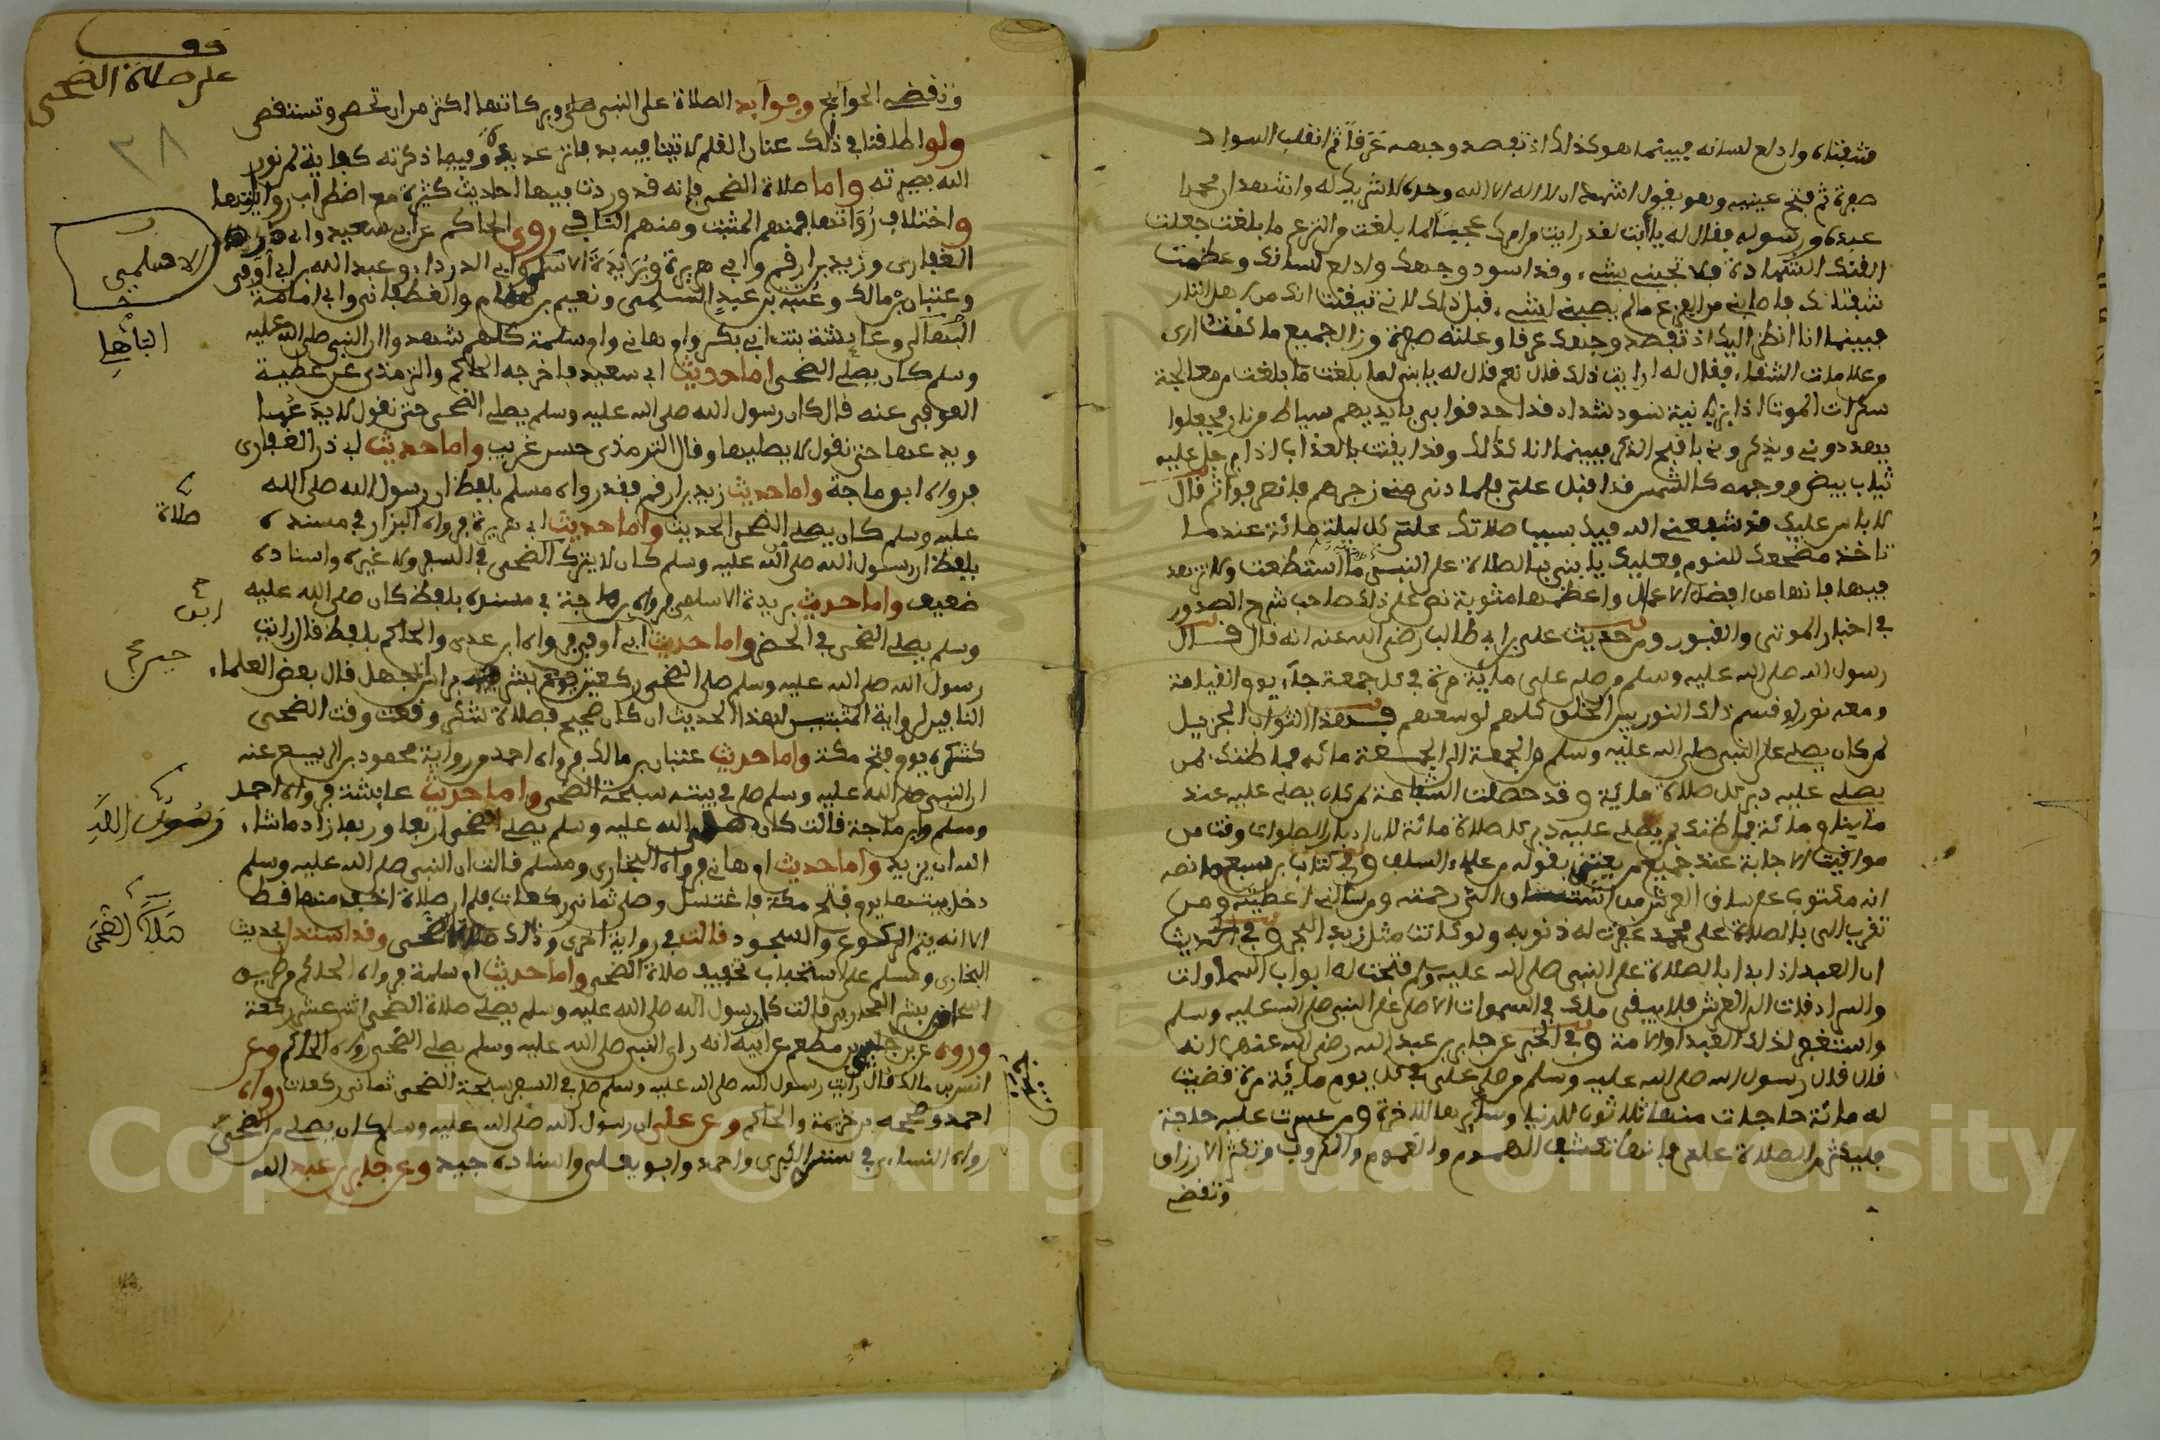 شفتاه وادلع لسانه فبينما هو كذلك اذ تفصد وجهه عَرَقاً ثم انقلب السواد
صفرة ثم فتح عينيه وهو يقول اشهد ان لا اله الا الله وحده لا شريك له واشهد ان محمدا
عبده ورسوله فقال له يا أبت لقد رايت وامرك عجيبا لما بلغت من النزع ما بلغت جعلت
القنك الشهادة فلا تجبني بشيء وقد اسود وجهك وادلع لسانك وعظمت
شفتاك فاصابني من الفزع ما لم يصبني لشيء قبل ذلك لاني تيقنت انك من اهل النار
فبينما انا انظر اليك اذ تفصد وجهك عرقا وعلته صفرة وزال جميع ما كنت ارى
وعلامات الشقاء فقال له ارايت ذلك قال نعم قال له يا بني لما بلغت ما بلغت من معالجة
سكرات الموت اذا بزبانية سود شداد قد احدقوا بي بايديهم سياط من نار فجعلوا
يهددوني ويذكروني باقبح الذكر فبينما انا كذلك وقد ايقنت بالعذاب اذا برجل عليه
ثياب بيض ووجهه كالشمس قد اقبل علي فلما دنى منه زجرهم فانصرفوا ثم قال
لا باس عليك قد شفعني الله فيك بسبب صلاتك علي كل ليلة مائة عندما
تاخذ مضجعك للنوم فعليك يا بني بالصلاة على النبي ما استطعت ولا تزهد
فيها فانها من افضل الاعمال واعظمها مثوبة نص على ذلك صاحب شرح الصدور
في اخبار الموتى والقبور ومن حديث علي بن ابي طالب رضي الله عنه انه قال قال
رسول الله صلى الله عليه وسلم من صلى علي مائة مرة في كل جمعة جاء يوم القيامة
ومعه نور لو قسم ذلك النور بين الخلق كلهم لوسعهم فهذا الثواب الجزيل
لم كان يصلي على النبي صلى الله عليه وسلم من الجمعة الى الجمعة مائة فما ظنك بمن
يصلي عليه دبر كل صلاة مائة وقد حصلت الشفاعة لم كان يصلي عليه عند
منامه مائة فما ظنك بمن يصلي عليه دبر كل صلاة مائة لان ادبار الصلوات وقت من
مواقيت الاجابة عند جميع من يعتنى بقوله من علماء السلف وفي كتاب بن سبع ما نصه
انه مكتوب على ساق العرش من اشتاق الي رحمته ومن سالني اعطيته ومن
تقرب الي بالصلاة على محمد غفرت له ذنوبه ولو كانت مثل زبد البحر وفي الحديث
ان العبد اذا بدا بالصلاة على النبي صلى الله عليه وسلم فتحت له ابواب السماوات
والسرادقات الى العرش فلا يبقى ملك في السموات الا صلى على النبي صلى الله عليه وسلم
واستغفر لذلك العبد او الامة وفي الخبر عن جابر بن عبد الله رضي الله عنهما انه
قال قال رسول الله صلى الله عليه وسلم من صلى علي في كل يوم مائة مرة قضيت
له مائة حاجات منها ثلاثون للدنيا وسائرها للاخرة ومن عسرت عليه حاجة
فليكثر من الصلاة علي فانها تكشف الهموم والغموم والكروب وتكثر الارزاق
وتقضي
وقف
على صلاة الضحى
٣٨
وتقضي الحوائج وفوايد الصلاة على النبي صلى وبركاتها اكثر من ان تحصر وتستقصى
ولو اطلقنا في ذلك عنان القلم لاتينا فيه بدفاتر عديدة وفيما ذكرته كفاية لم نور
الله بصيرته واما صلاة الضحى فانه قد وردت فيها احاديث كثيرة مع اضطراب رواياتها
واختلاف رُوَاتها فمنهم المثبت ومنهم النافي روى الحاكم عن ابي سعيد وابي ذر
الغفاري وزيد بن ارقم وابي هريرة وبُرَيدَة الاسلمي وابي الدرداء وعبد الله بن ابي أوفى
وعتبان بن مالك وعُتبَة بن عبدٍ السلمي ونعيم بن همام والغطفاني وابي امامة
البُهالي وعايشة بنت ابي بكر وام هاني وام سلمة كلهم شهدوا ان النبي صلى الله عليه
وسلم كان يصلي الضحى اما حديث ابي سعيد فاخرجه الحاكم والترمذي عن عطية
العوفي عنه قال كان رسول الله صلى الله عليه وسلم يصلي الضحى حتى نقول لا يدَعُها
ويدعها حتى نقول لا يصليها وقال الترمذي حسن غريب واما حديث ابي ذر الغفاري
فرواه ابو ماجة واما حديث زيد بن ارقم فقد رواه مسلم بلفظ ان رسول الله صلى الله
عليه وسلم كان يصلي الضحى الحديث واما حديث ابي هريرة فرواه البزار في مسنده
بلفظ ان رسول الله صلى الله عليه وسلم كان لا يترك الضحى في السفر ولا غيره واسناده
ضعيف واما حديث بريدة الاسلمي فرواه بن ماجة في مسنده بلفظ كان صلى الله عليه
وسلم يصلي الضحى في الحضر واما حديث ابي اوفى فرواه ابن عدي والحاكم بلفظ قال رايت
رسول الله صلى الله عليه وسلم صلى الضحى ركعتين يوم بشر براس ابي جهل قال بعض العلماء
النافين لرواية المثبتين لهذا الحديث ان كان صحيح فصلاة شكر وقعت وقت الضحى
كشكره يوم فتح مكة واما حديث عتبان بن مالك فرواه احمد من رواية محمود بن الربيع عنه
ان النبي صلى الله عليه وسلم صلى في بيته سبحة الضحى واما حديث عايشة فرواه احمد
ومسلم وابن ماجة قالت كان صلى الله عليه وسلم يصلي الضحى اربعا وربما زاد ما شاء
الله ان يزيد واما حديث ام هاني فرواه البخاري ومسلم قالت ان النبي صلى الله عليه وسلم
دخل بيتها يوم فتح مكة فاغتسل وصلى ثماني ركعات فلم ار صلاة اخف منها قط
الا انه يتم الركوع والسجود قالت في رواية اخرى وذلك صلاة الضحى وقد استدل الحديث
البخاري ومسلم على استحباب تخفيف صلاة الضحى واما حديث ام سلمة فرواه الحاكم من طريق
اسحاق بن بشر المحدبي قالت كان رسول الله صلى الله عليه وسلم يصلي صلاة الضحى اثنى عشر ركعة
وروى عن بن جبير بن مطعم عن ابيه انه راى النبي صلى الله عليه وسلم يصلي الضحى رواه الحاكم وعن
انس بن مالك قال رايت رسول الله صلى الله عليه وسلم صلى في السفر سبحة الضحى ثماني ركعات رواه
احمد وصححه بن خزيمة والحاكم وعن علي ان رسول الله صلى الله عليه وسلم كان يصلي من الضحى
رواه النساءي في سننه الكبرى واحمد وابو يعلى واسناده جيد وعن جابر بن عبد الله
الاسلمي
البَاهِلي
صلاة
ابن
رسُول اللَّهِ
صَلَاة الضُّحَى
Copyright © King Saud University
1957